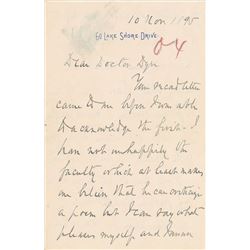 10 Nov 1895
60 LAKE SHORE DRIVE.
04
Dear Doctor Dyer
Your second letter
came to me before I was able
to acknowledge the first – I
have not unhappily the
faculty which at least makes
me believe that he can criticize
a poem but I can say what
pleases myself and